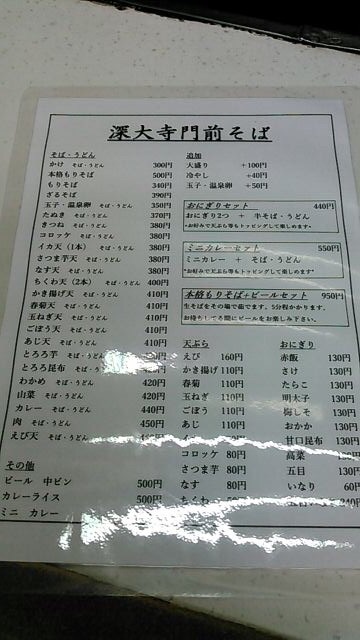 深大寺門前そば
そば・うどん
かけ そば・うどん 300円
本格もりそば 500円
もりそば 340円
ざるそば 390円
玉子・温泉卵 そば・うどん 350円
たぬき そば・うどん 370円
きつね そば・うどん 380円
コロッケ そば・うどん 380円
イカ天（1本） そば・うどん 380円
さつま芋天 そば・うどん 380円
なす天 そば・うどん 380円
ちくわ天（2本） そば・うどん 400円
かき揚げ天 そば・うどん 410円
春菊天 そば・うどん 410円
玉ねぎ天 そば・うどん 410円
ごぼう天 そば・うどん 410円
あじ天 そば・うどん 410円
とろろ芋 そば・うどん
とろろ昆布 そば・うどん
わかめ そば・うどん 420円
山菜 そば・うどん 420円
カレー そば・うどん 440円
肉 そば・うどん 450円
えび天 そば・うどん
その他
ビール 中ビン 500円
カレーライス 500円
ミニ カレー
追加
大盛り +100円
冷やし +40円
玉子・温泉卵 +50円
おにぎりセット 440円
おにぎり2つ + 半そば・うどん
*お好みで天ぷら等もトッピングして楽しめます*
ミニカレーセット 550円
ミニカレー + そば・うどん
*お好みで天ぷら等もトッピングして楽しめます*
本格もりそば+ビールセット 950円
生そばをその場で茹でます。5分程かかります。
お待ちしてる間にビールをお楽しみ下さい。
天ぷら
えび 160円
かき揚げ 110円
春菊 110円
玉ねぎ 110円
ごぼう 110円
あじ 110円
コロッケ 80円
さつま芋 80円
なす 80円
ちくわ
おにぎり
赤飯 130円
さけ 130円
たらこ 130円
明太子 130円
梅しそ 130円
おかか 130円
甘口昆布 130円
高菜 130円
五目 130円
いなり 60円